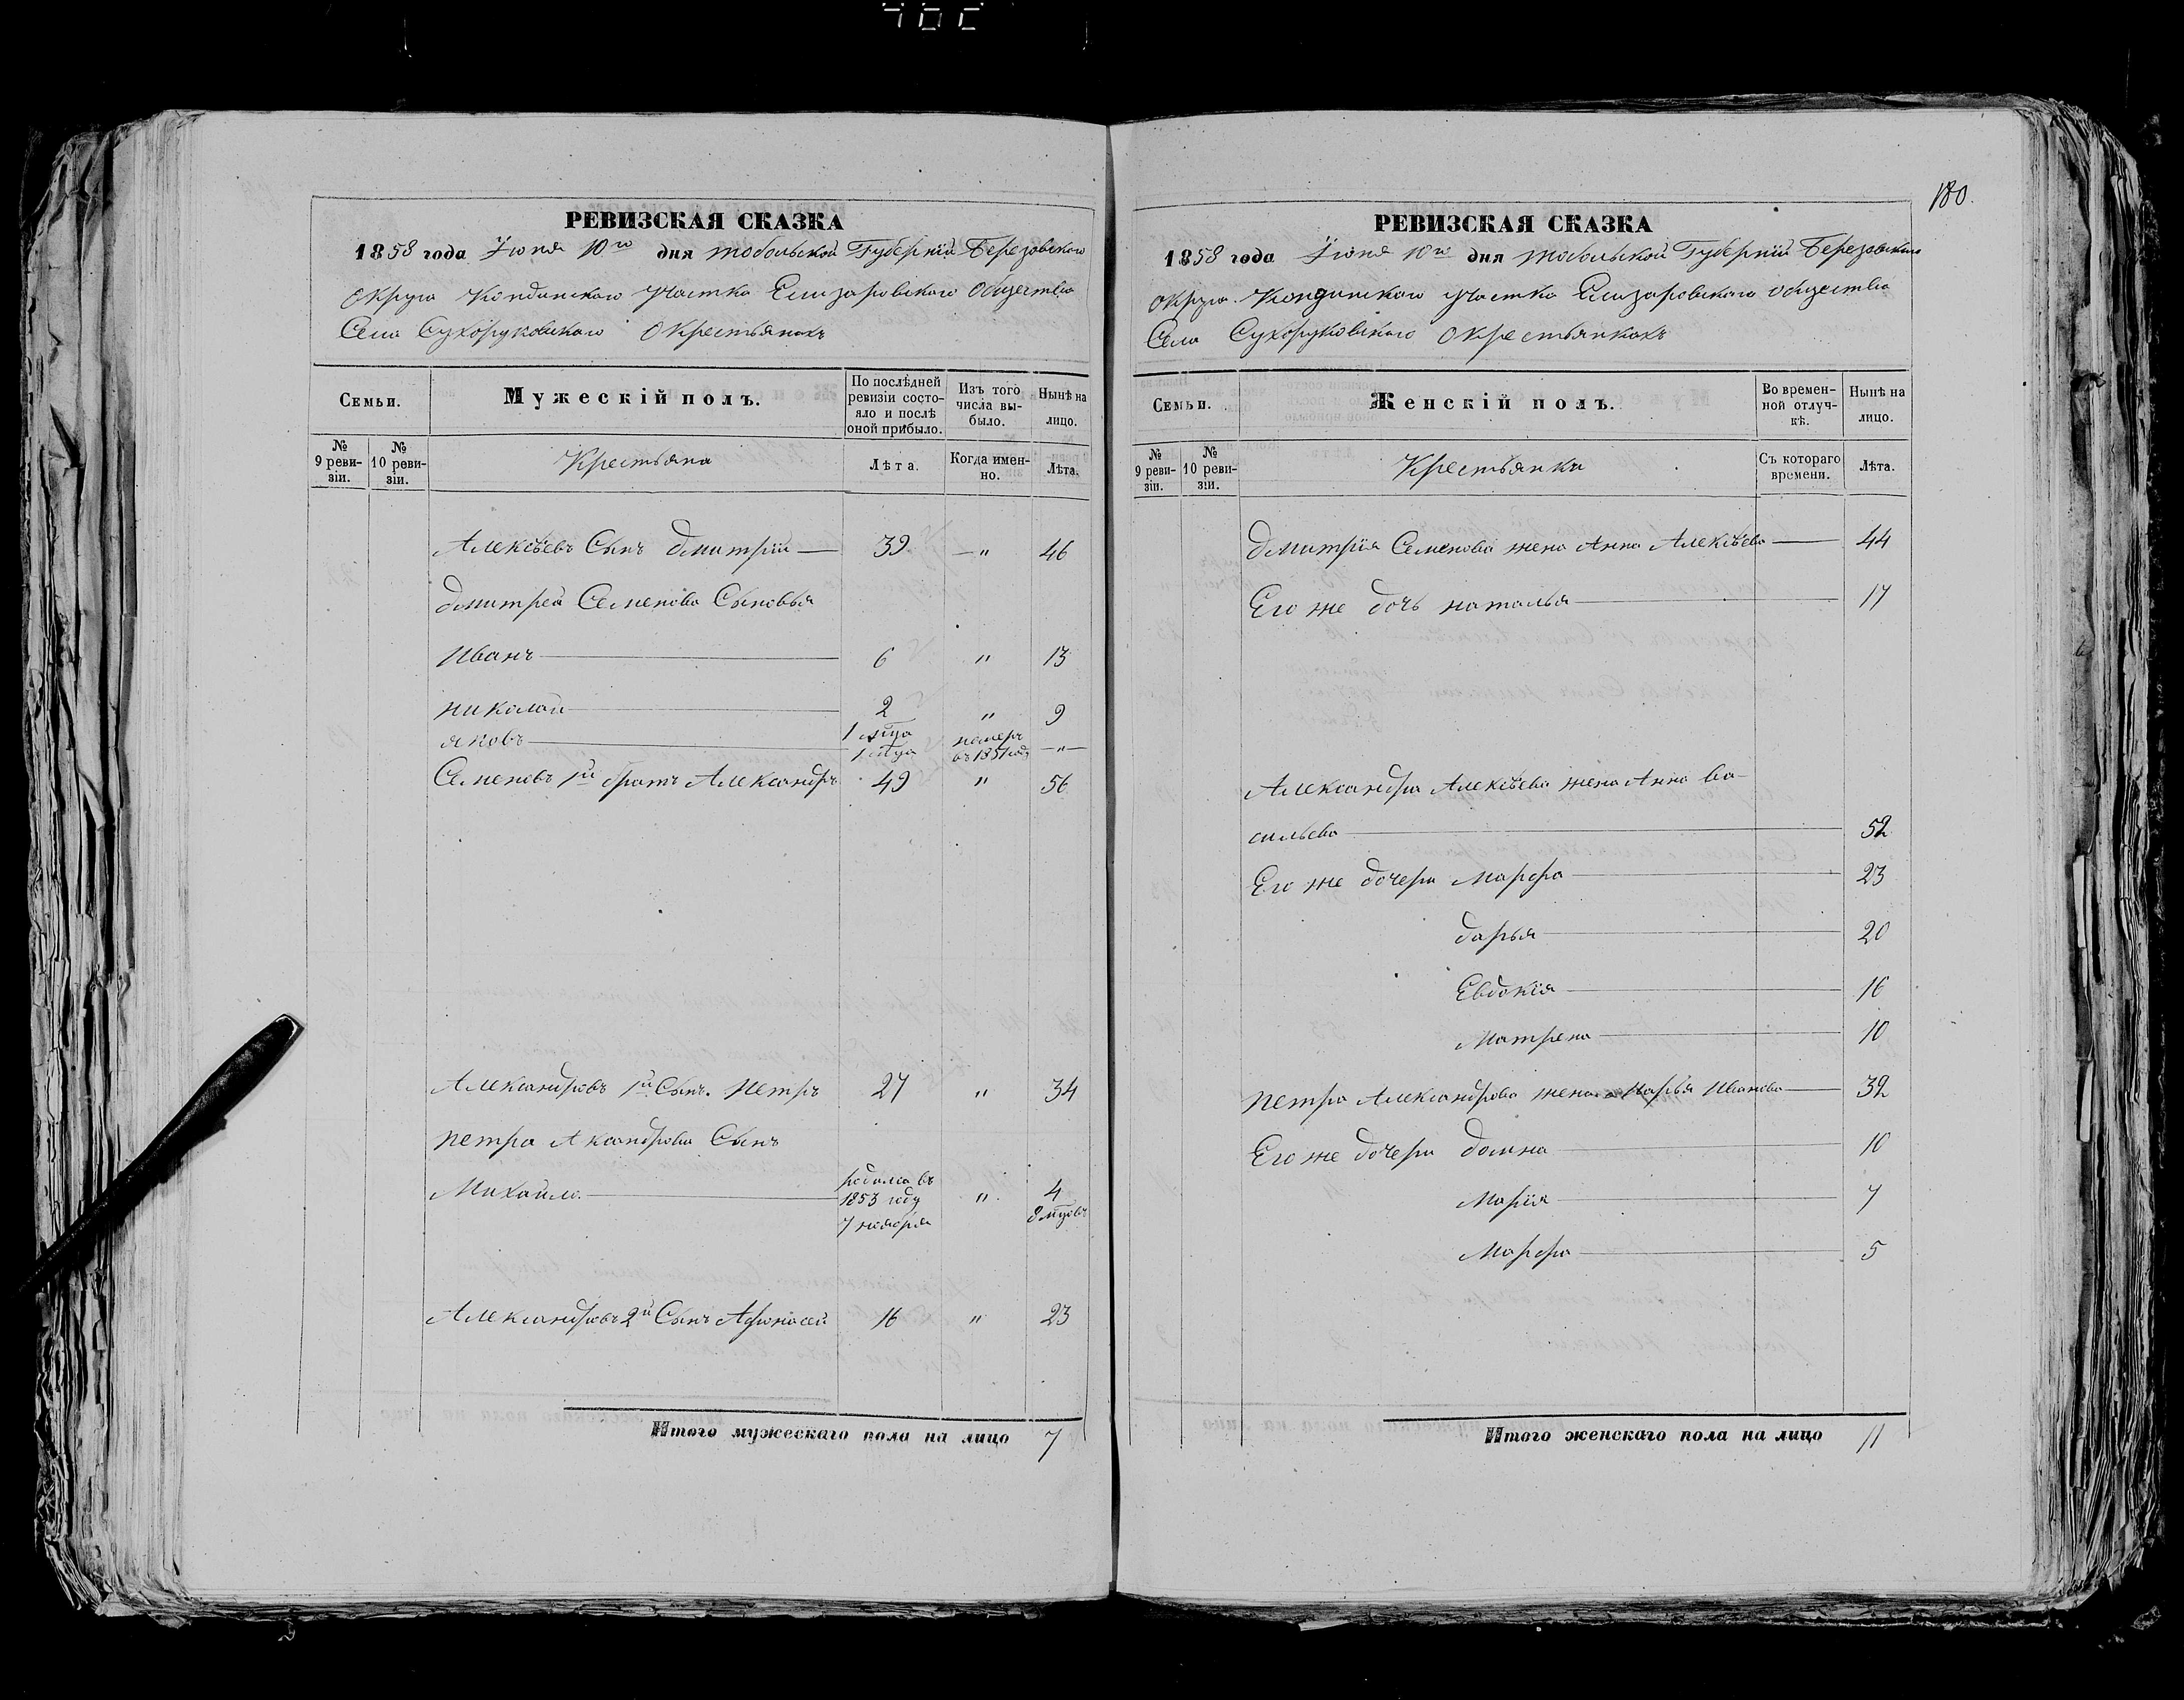 180.
РЕВИЗСКАЯ СКАЗКА
1858 года Іюня 10го дня тобольской Губерніи Березовского
округа Кондинского участка Елизаровского общества
Села Сухоруковского о крестьянахъ
Семьи.
Мужескій полъ.
По послѣдней ревизіи состояло и послѣ оной прибыло.
Изъ того числа выбыло.
Нынѣ на лицо.
№ 9 ревизіи.
№ 10 ревизіи.
Крестьяна
Лѣта.
Когда именно.
Лѣта.
Алексѣевъ Сынъ дмитрій — 39 — " 46
дмитрея Семенова Сыновья
Иванъ — 6 " 13
николай — 2 " 9
яковъ — 1 мца 1 мца померъ въ 1851 годѣ — " —
Семеновъ 1й братъ Александръ 49 " 56
Александровъ 1й Сынъ. Петръ 27 " 34
петра Аксандрова Сынъ
Михайло. — родился въ 1853 году 7 ноября " 4 8 мцовъ
Александровъ 2й Сынъ Афонасей 16 " 23
Итого мужескаго пола на лицо 7
РЕВИЗСКАЯ СКАЗКА
1858 года Іюня 10го дня тобольской Губерніи Березовского
округа Кондинского участка Елизаровского общества
Села Сухоруковского о крестьянкахъ
Семьи.
Женскій полъ.
Во временной отлучкѣ.
Нынѣ на лицо.
№ 9 ревизіи.
№ 10 ревизіи.
Крестьянки
Съ котораго времени.
Лѣта.
дмитрія Семенова жена Анна Алексѣева — 44
Его же дочь наталья — 17
Александра Алексѣева жена Анна ва-
сильева — 52
Его же дочери Марфа — 23
дарья — 20
Евдокія — 16
Матрена — 10
петра Александрова жена Марья Иванова — 32
Его же дочери домна — 10
Марія — 7
Марфа — 5
Итого женскаго пола на лицо 11